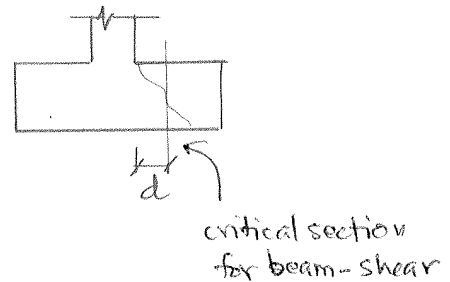 d
critical section
for beam-shear